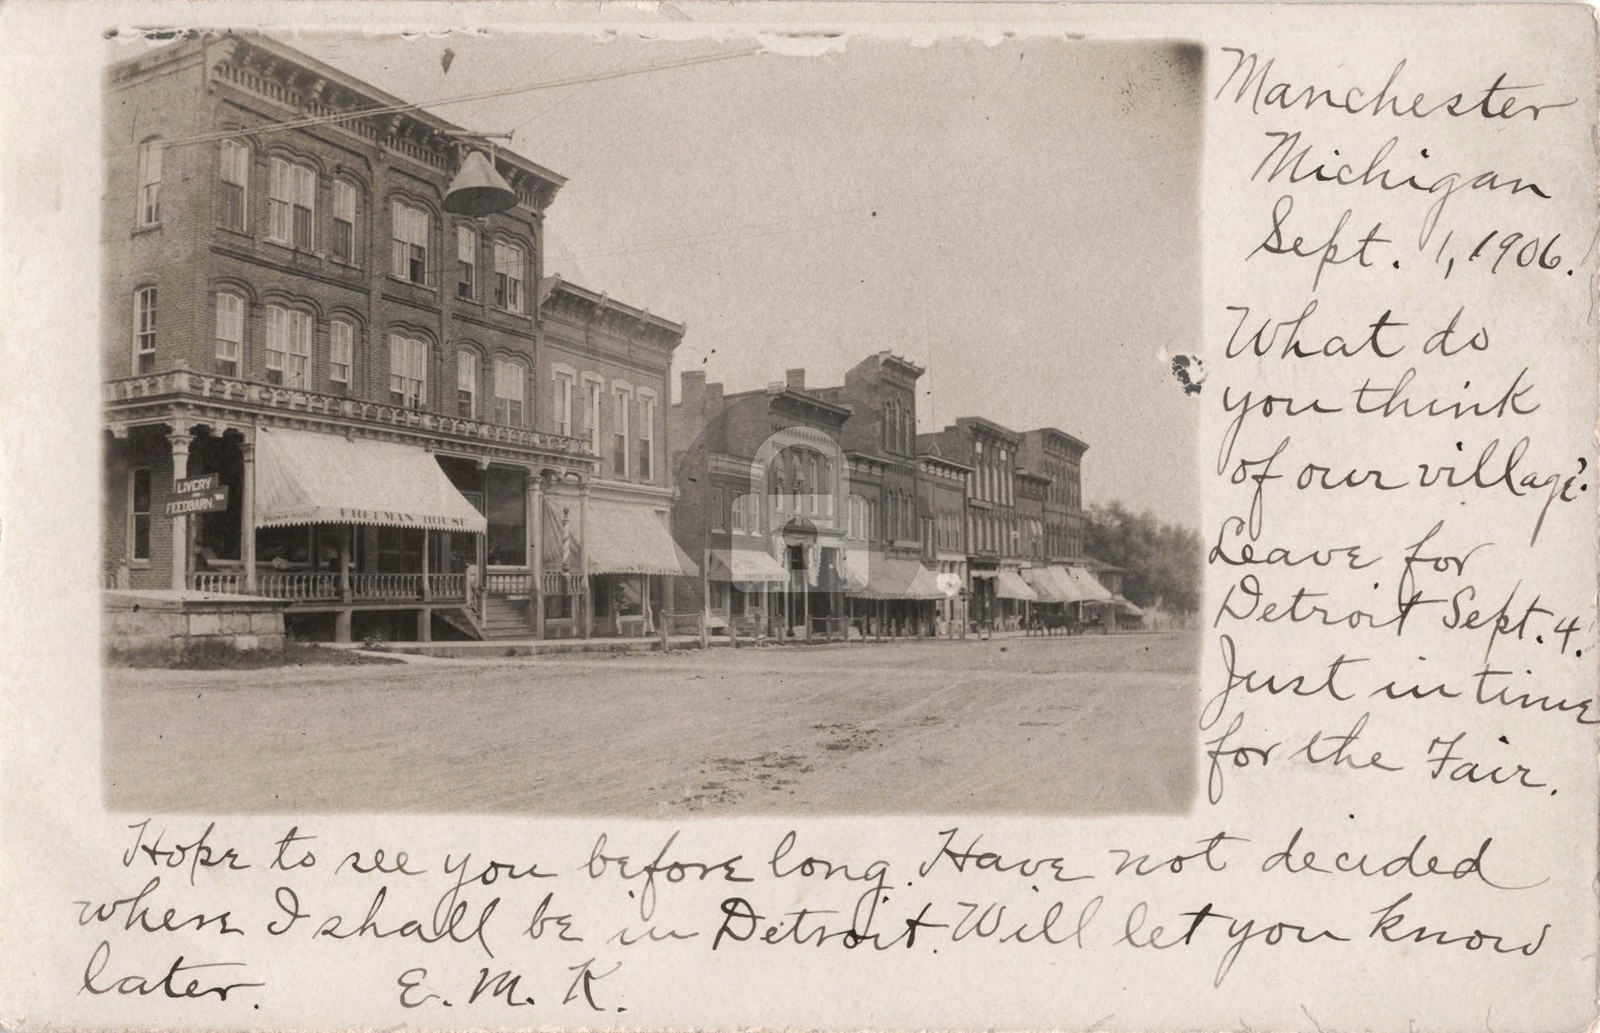 LIVERY
AND
FEEDBARN.
FREEMAN HOUSE
Manchester
Michigan
Sept. 1, 1906.
What do
you think
of our village?
Leave for
Detroit Sept. 4.
Just in time
for the Fair.
Hope to see you before long. Have not decided
where I shall be in Detroit. Will let you know
later. E. M. K.